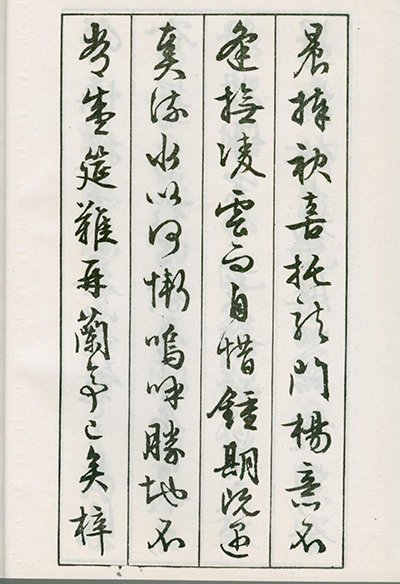 晨捧袂喜托龙門楊意不
逢撫凌雲而自惜鍾期既遇
奏流水以何慚嗚呼勝地不
常盛筵難再蘭亭已矣梓